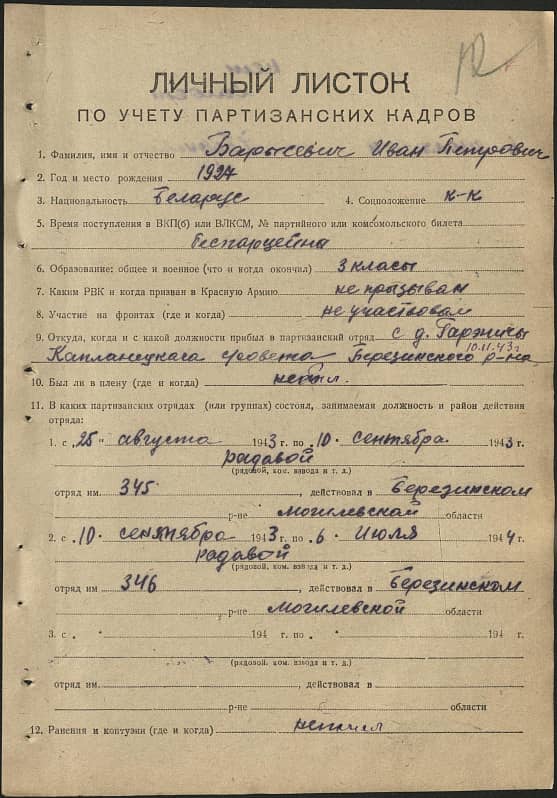 ЛИЧНЫЙ ЛИСТОК
ПО УЧЕТУ ПАРТИЗАНСКИХ КАДРОВ
1. Фамилия, имя и отчество Иван Петрович
2. Год и место рождения 1927
3. Национальность Беларус 4. Соцположение к-к
5. Время поступления в ВКП(б) или ВЛКСМ, № партийного или комсомольского билета
беспартейны
6. Образование: общее и военное (что и когда окончал) 3 класы
7. Каким РВК и когда призван в Красную Армию не прызыван
8. Участие на фронтах (где и когда) не участвовал
9. Откуда, когда и с какой должности прибыл в партизанский отряд с д.
10.11.43г
Березинского р-на
10. Был ли в плену (где и когда) не был.
11. В каких партизанских отрядах (или группах) состоял, занимаемая должность и район действия
отряда:
1. с „25" августа 1943 г. по „10" сентября 1943 г.
радавой
(рядовой, ком. взвода и т. д.)
отряд им. 345, действовал в Березинском
р-не Могилевской области
2. с „10" сентября 1943 г. по „6" Июля 1944 г.
радавой
(рядовой, ком. взвода и т. д.)
отряд им. 346, действовал в Березинском
р-не Могилевской области
3. с „ " 194 г. по „ " 194 г.
(рядовой, ком. взвода и т. д.)
отряд им. действовал в
р-не области
12. Ранения и контузии (где и когда)